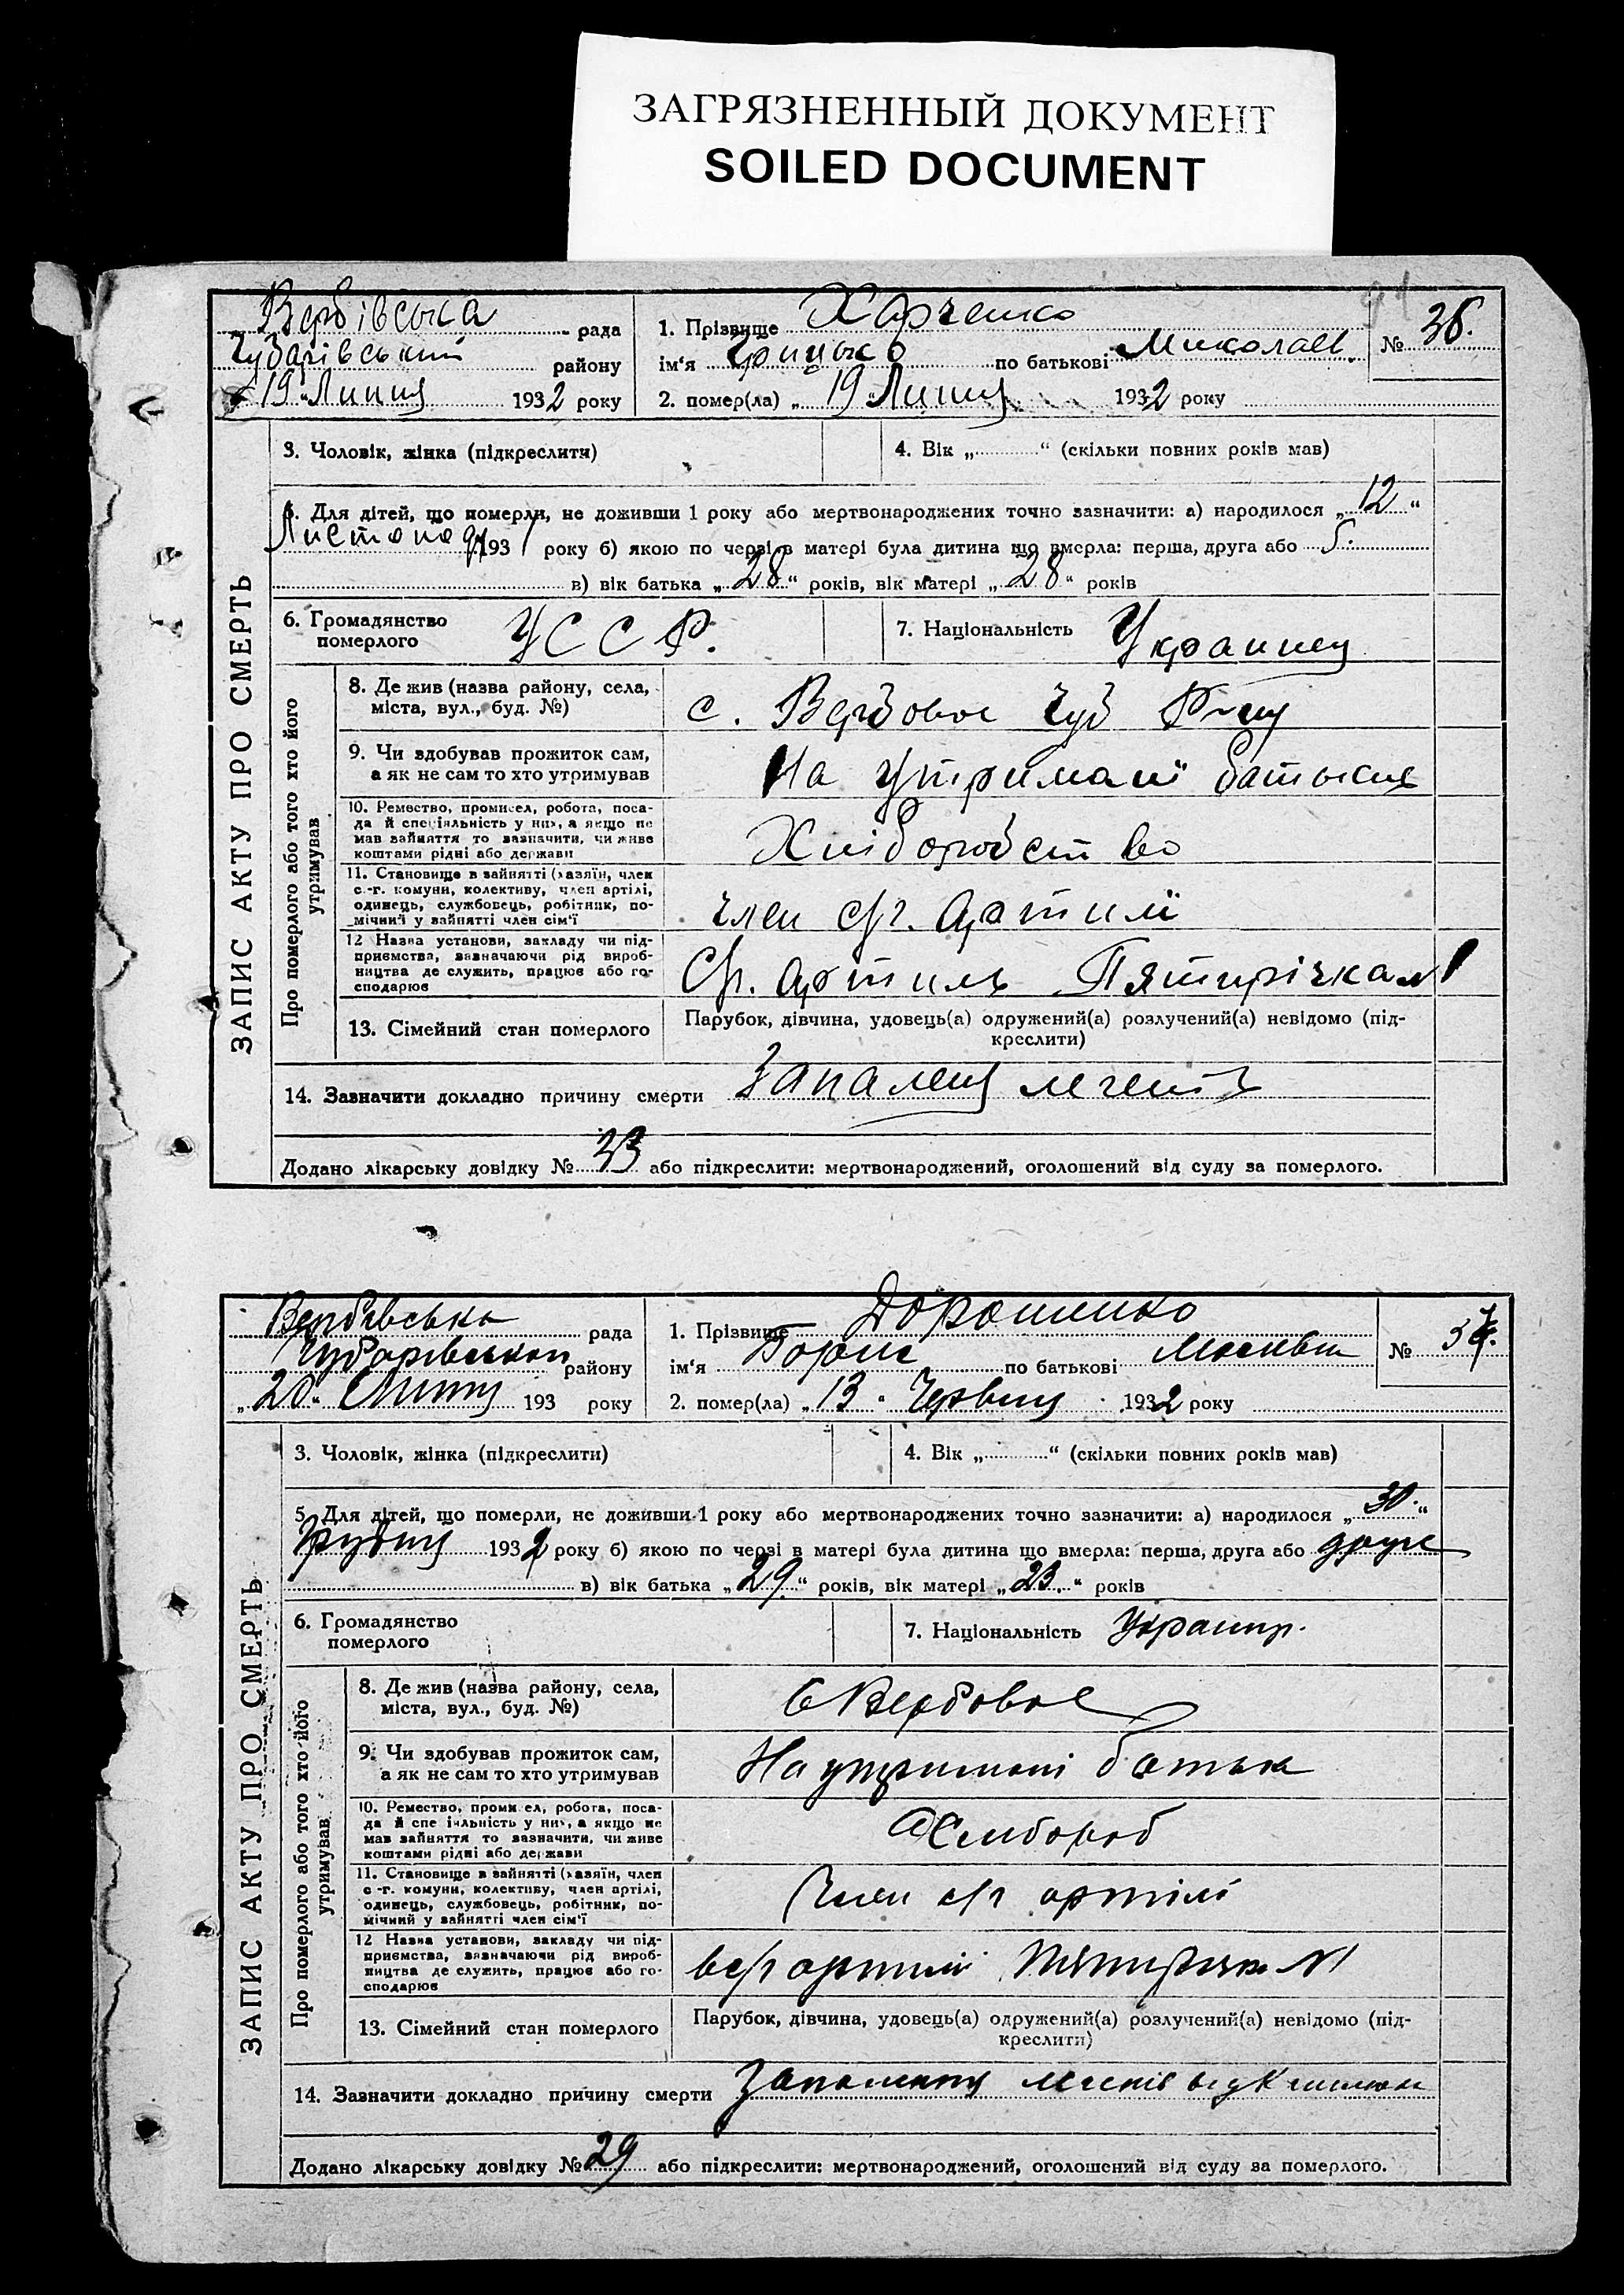 ЗАГРЯЗНЕННЫЙ ДОКУМЕНТ
SOILED DOCUMENT
Вербівська рада
Чубарівський району
"19" Липня 1932 року
1. Прізвище Харченко
ім‘я Грицько по батькові Миколаєв.
2. помер(ла) „ 19 " Липня 1932 року
№ 36.
ЗАПИС АКТУ ПРО СМЕРТЬ
3. Чоловік, жінка (підкреслити)
4. Вік „ “ (скільки повних років мав)
5. Для дітей, що померли, не доживши 1 року або мертвонароджених точно зазначити: а) народилося „ 12 “
Листопада 1931 року б) якою по черзі в матері була дитина що вмерла: перша, друга або 5.
в) вік батька „ 28 “ років, вік матері „ 28 “ років
6. Громадянство
померлого
УССР.
7. Національність Украинец
Про померлого або того хто його
утримував
8. Де жив (назва району, села,
міста, вул., буд. №)
с. Вербовое Чуб Р-ну
9. Чи здобував прожиток сам,
а як не сам то хто утримував
На утримані батька
10. Ремество, промисел, робота, поса-
да й спеціяльність у них, а якщо не
мав зайняття то зазначити, чи живе
коштами рідні або держави
Хліборобство
11. Становище в зайнятті (хазяїн, член
с.-г. комуни, колективу, член артілі,
одинець, службовець, робітник, по-
мічний у зайнятті член сім‘ї
член с/г. Артилі
12 Назва установи, закладу чи під-
приємства, зазначаючи рід вироб-
ництва де служить, працює або го-
сподарює
С/г. артиль Пятирічка №1
13. Сімейний стан померлого
Парубок, дівчина, удовець(а) одружений(а) розлучений(а) невідомо (під-
креслити)
14. Зазначити докладно причину смерти Запаленя легенів
Додано лікарську довідку № 33 або підкреслити: мертвонароджений, оголошений від суду за померлого.
Вербівська рада
Чубарівського району
„ 20 “ Липня 193 року
1. Прізвище Дорошенко
ім‘я Борис по батькові
2. помер(ла) „ 13 " Червня 1932 року
№ 37.
ЗАПИС АКТУ ПРО СМЕРТЬ
3. Чоловік, жінка (підкреслити)
4. Вік „ “ (скільки повних років мав)
5. Для дітей, що померли, не доживши 1 року або мертвонароджених точно зазначити: а) народилося „ 30. “
Грудня 1932 року б) якою по черзі в матері була дитина що вмерла: перша, друга або друге
в) вік батька „ 29. “ років, вік матері „ 23. “ років
6. Громадянство
померлого
7. Національність Украинр.
Про померлого або того хто його
утримував
8. Де жив (назва району, села,
міста, вул., буд. №)
С Вербовое
9. Чи здобував прожиток сам,
а як не сам то хто утримував
На утримані батька
10. Ремество, промисел, робота, поса-
да й спеціяльність у них, а якщо не
мав зайняття то зазначити, чи живе
коштами рідні або держави
Хлибороб
11. Становище в зайнятті (хазяїн, член
с-г. комуни, колективу, член артілі,
одинець, службовець, робітник, по-
мічний у зайнятті член сім‘ї
Член с/г артілі
12 Назва установи, закладу чи під-
приємства, зазначаючи рід вироб-
ництва де служить, працює або го-
сподарює
в с/г артилі Пятирічка №1
13. Сімейний стан померлого
Парубок, дівчина, удовець(а) одружений(а) розлучений(а) невідомо (під-
креслити)
14. Зазначити докладно причину смерти Запалення легенів
Додано лікарську довідку № 29 або підкреслити: мертвонароджений, оголошений від суду за померлого.